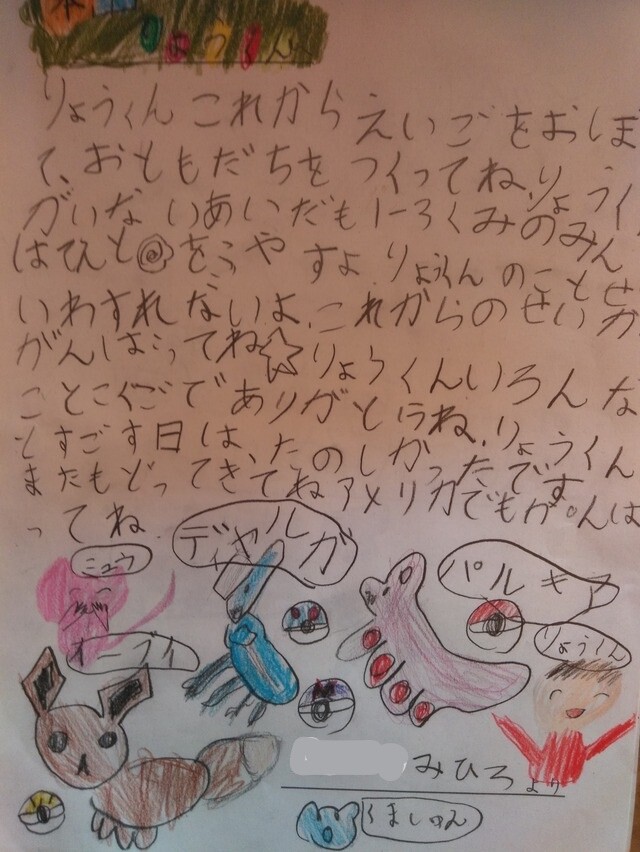 りょうくんへ
りょうくんこれからえいごをおしま
て、おともだちをつくってね、りょうく
がいないあいだも1-3くみのみん
はひとをふやすよ、りょうくんのことせ
いわすれないよ、これからのせいか
がんばってね☆りょうくんいろんな
ことこくごでありがとうね、りょうくん
とすごす日は、たのしかったです
またもどってきてねアメリカでもがんば
ってね
ミュウ
ディアルガ
パルキア
りょうくん
イーブイ
みひろより
くましゅん